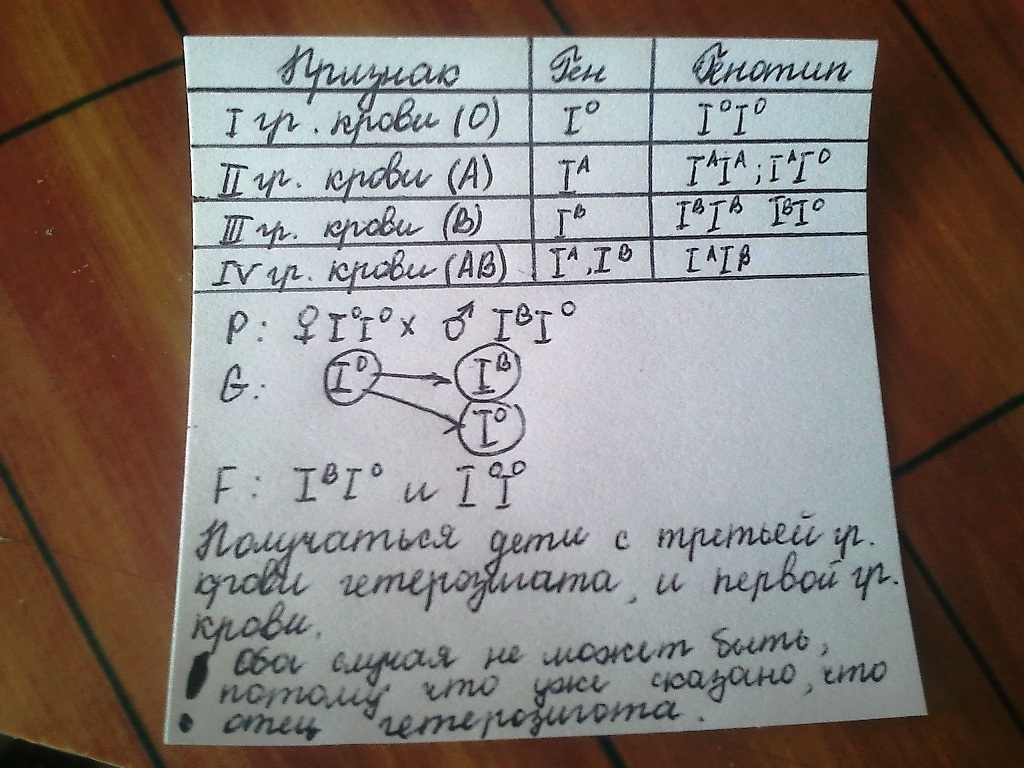 Признак Ген Генотип
I гр. крови (О) I^O I^O I^O
II гр. крови (А) I^A I^A I^A ; I^A I^O
III гр. крови (В) I^B I^B I^B I^B I^O
IV гр. крови (АВ) I^A, I^B I^A I^B
P: ♀ I^O I^O x ♂ I^B I^O
G: I^O → I^B
→ I^O
F: I^B I^O и I^O I^O
Получаться дети с третьей гр.
крови гетерозигата, и первой гр.
крови.
! Оба случая не может быть,
потому что уже сказано, что
отец гетерозигота.